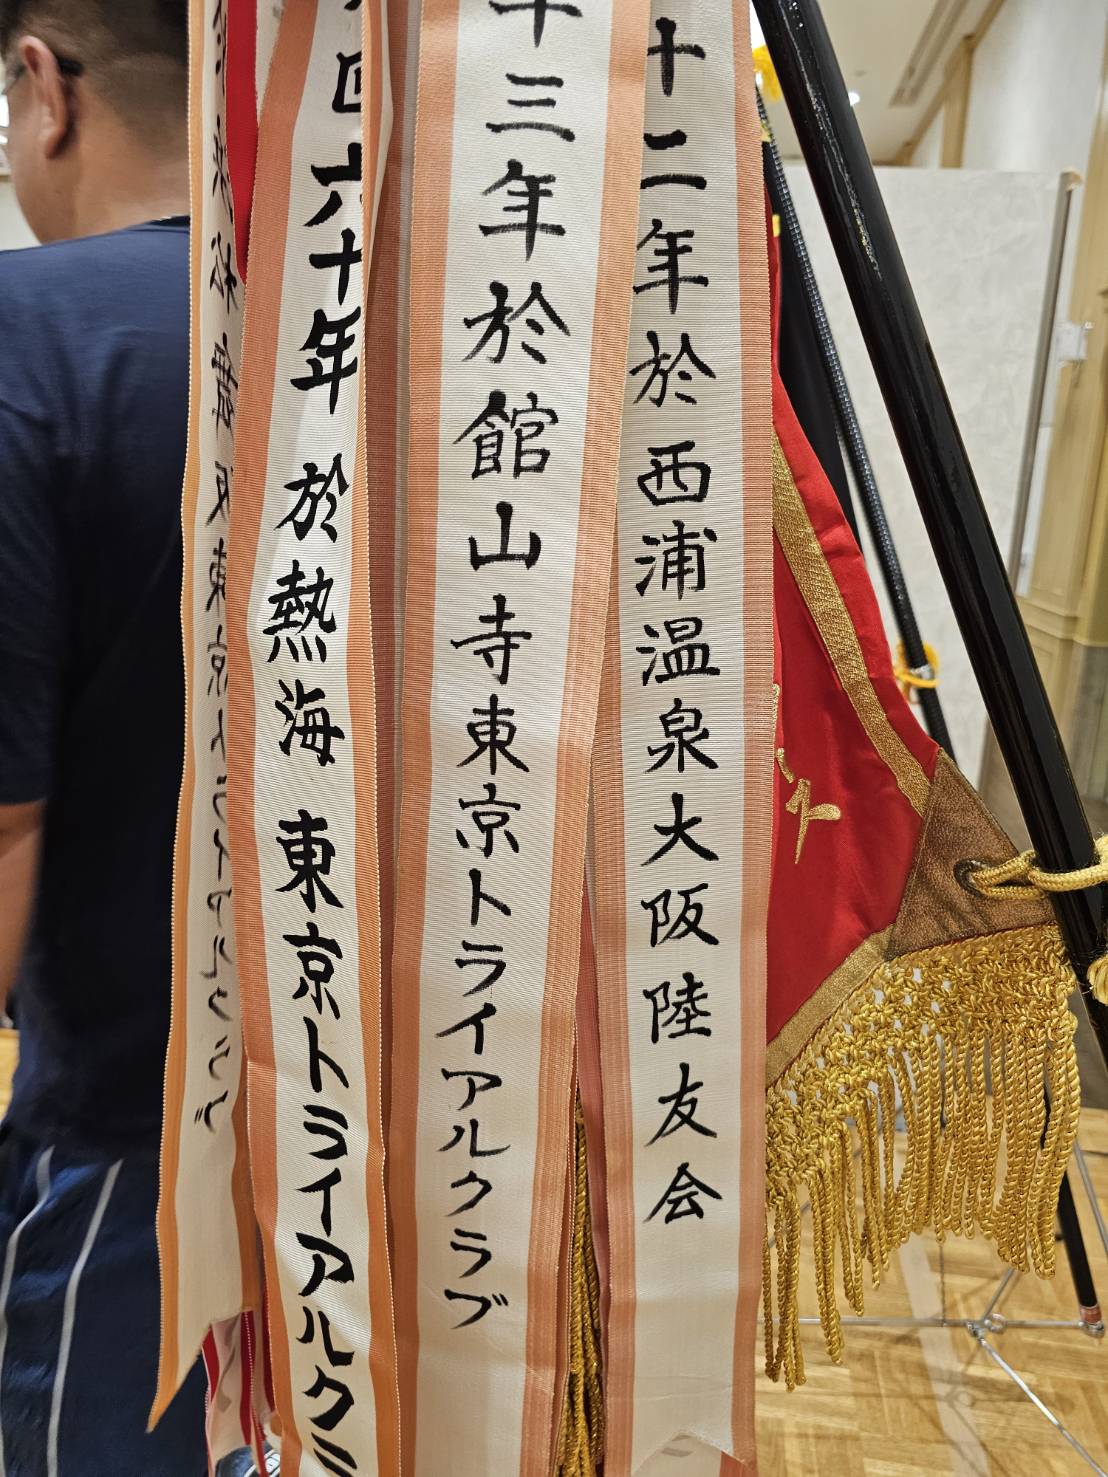 十二年於西浦温泉大阪陸友会
十三年於館山寺東京トライアルクラブ
回六十年於熱海東京トライアルクラ
東京トライアルクラブ